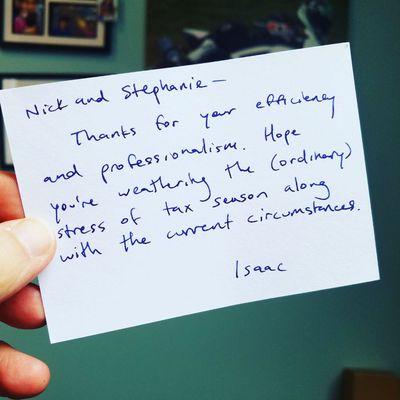 Nick and Stephanie —
Thanks for your efficiency
and professionalism. Hope
you're weathering the (ordinary)
stress of tax season along
with the current circumstances.
Isaac